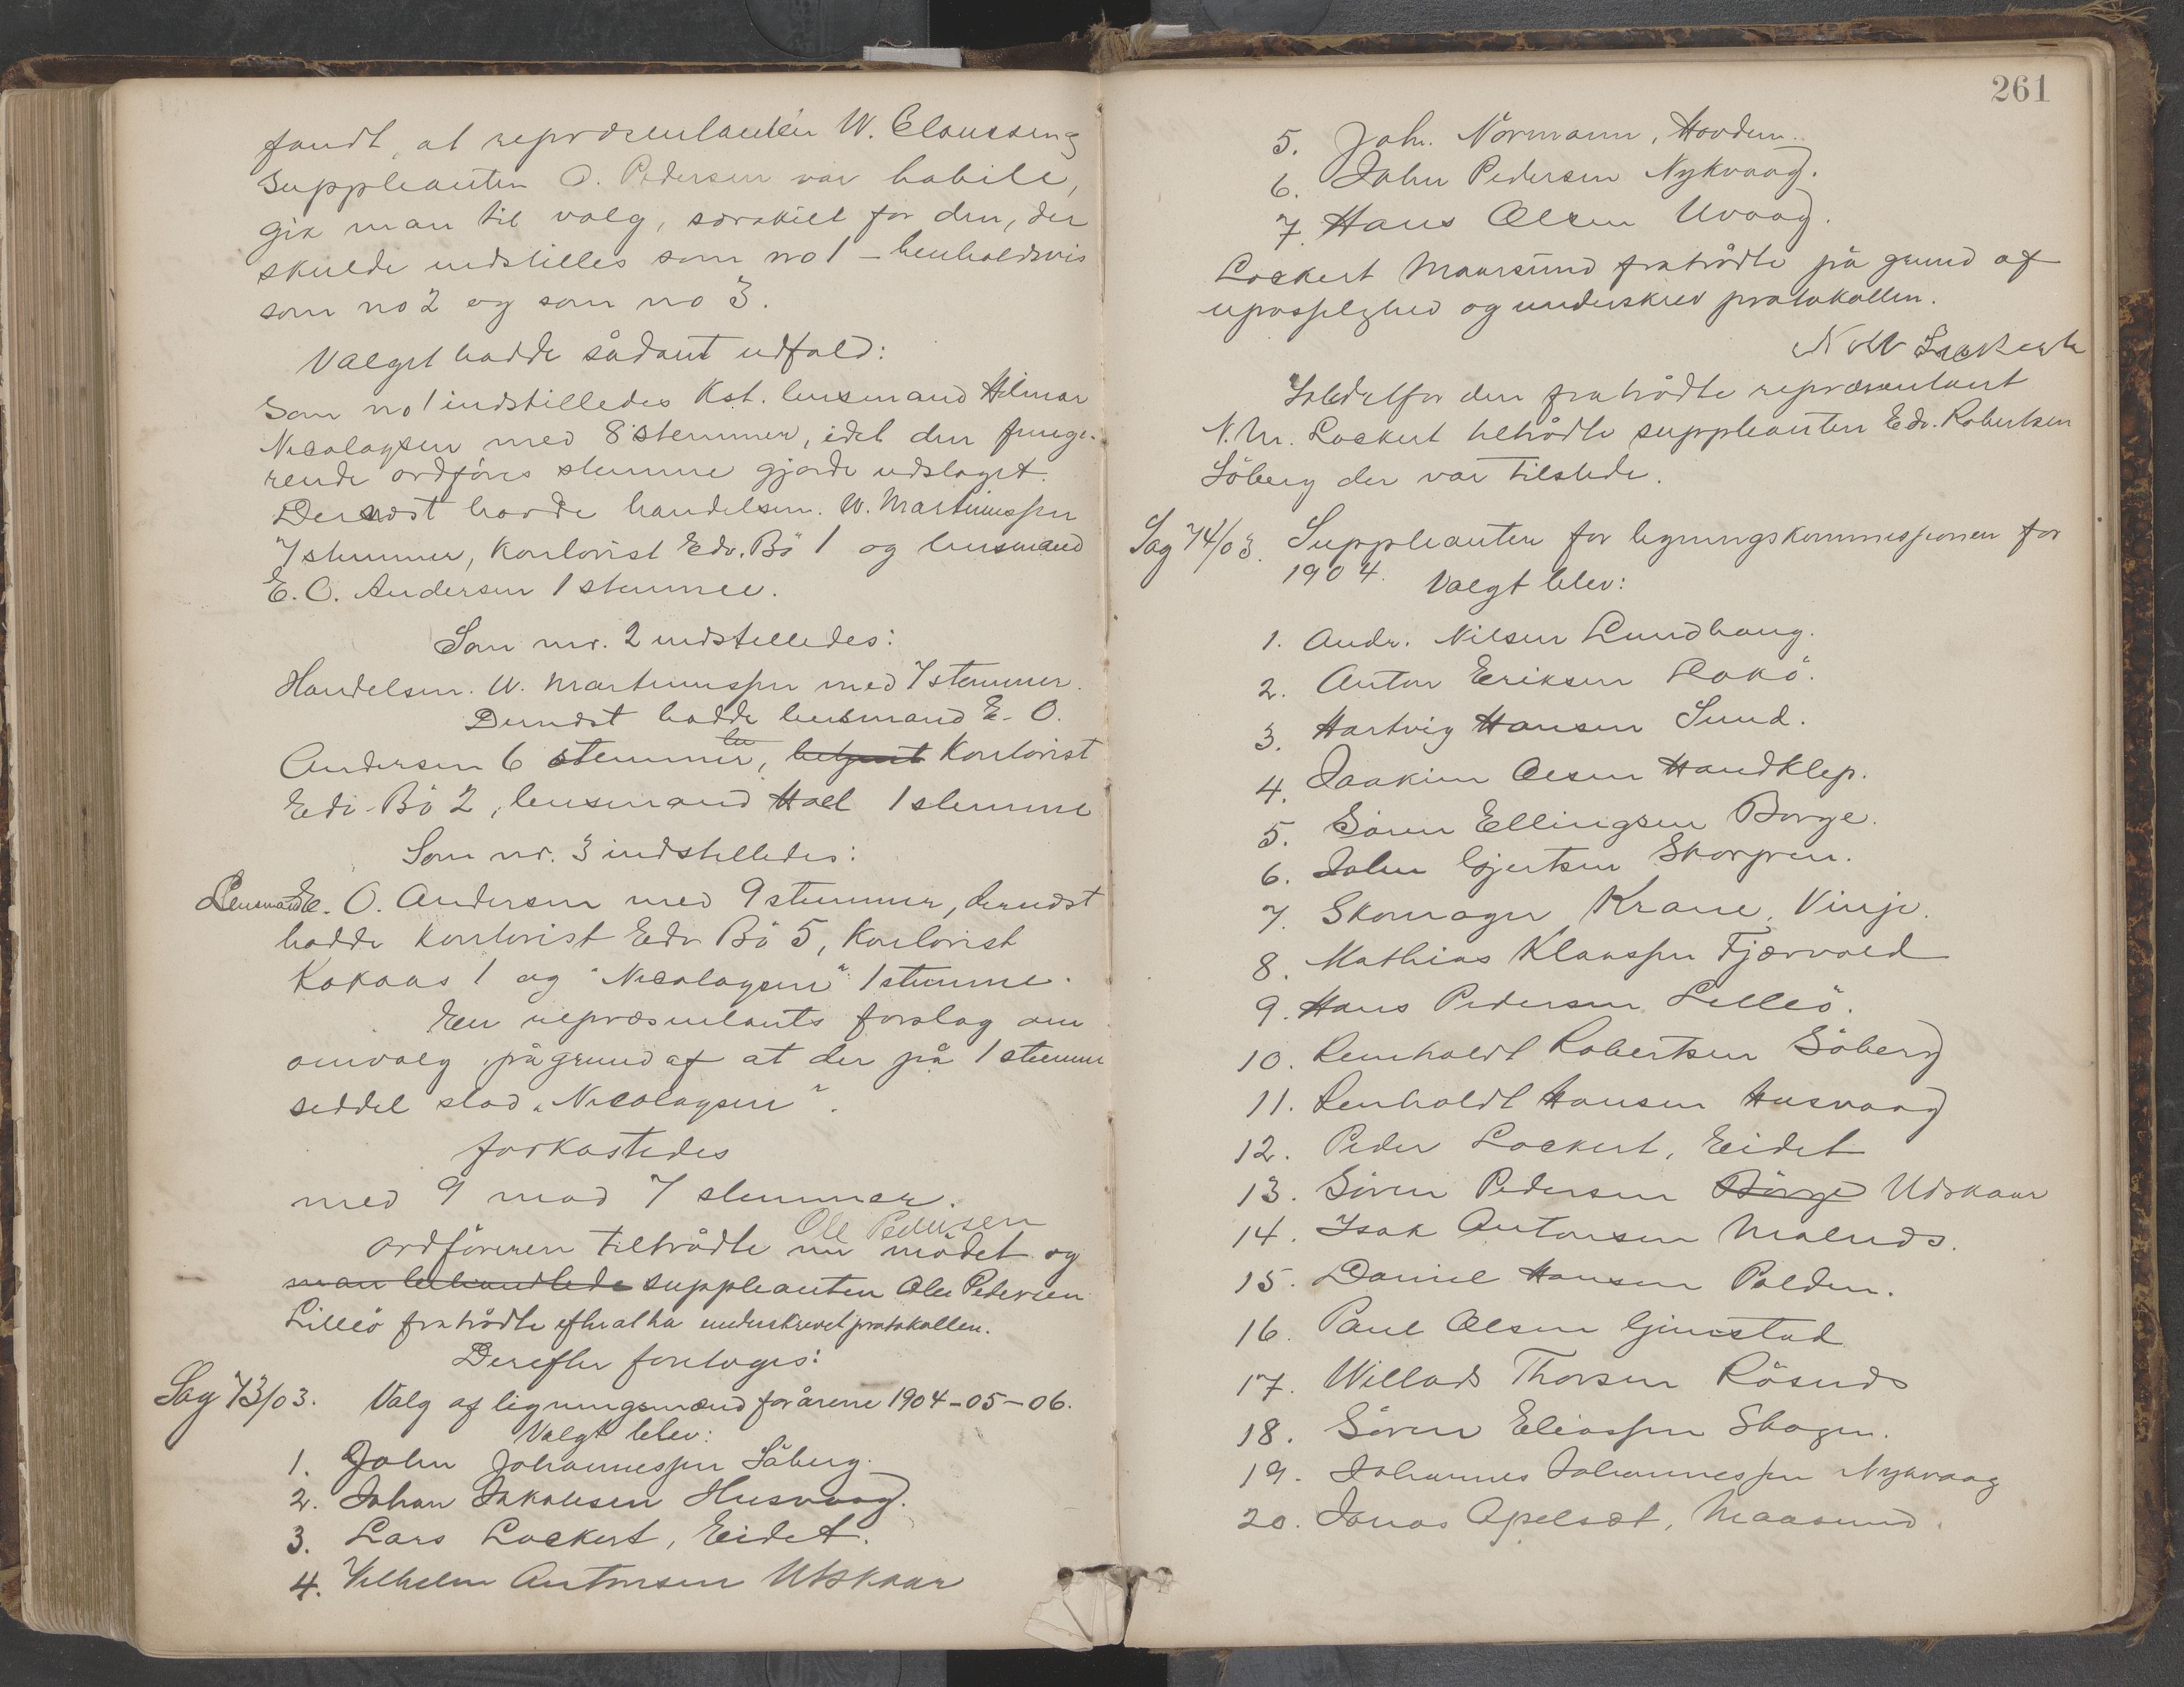 fandt, at repræsentanten W. Claussen og
Suppleanten O. Pedersen var habile,
gik man til valg, særskilt for den, der
skulde indstilles som no 1 – henholdsvis
som no 2 og som no 3.
Valget hadde sådant udfald:
Som no 1 indstilledes Kst. lensmand Hilmar
Nicolaysen med 8 stemmer, idet den funge-
rende ordførers stemme gjorde udslaget.
Dernæst havde handelsm. W. Martinussen
7 stemmer, Kontorist Edv. Bö 1 og lensmand
E. O. Andersen 1 stemme.
Som nr. 2 indstilledes:
Handelsm. W. Martinussen med 7 stemmer.
Dernæst hadde lensmand E. O.
Andersen 6 stemmer, Kontorist
Edv. Bö 2, lensmand Hall 1 stemme
Som nr. 3 indstilledes:
Lensmand E. O. Andersen med 9 stemmer, dernæst
hadde kontorist Edv Bö 5, Kontorist
Kokaas 1 og "Nicolaysen" 1 stemme.
En repræsentants forslag om
omvalg på grund af at der på 1 stemme
seddel stod „Nicolaysen".
forkastedes
med 9 mod 7 stemmer.
Ole Pedersen
Ordföreren tiltrådte nu mödet og
man behandlede suppleanten Ole Pedersen
Lilleö fratrådte efter at ha underskrevet protokollen.
Derefter foretoges:
Sag 73/03. Valg af ligningsmænd for årene 1904-05-06.
Valgt blev:
1. John Johannessen Söberg.
2. Johan Jakobsen Husvaag.
3. Lars Lockert, Eidet.
4. Vilhelm Antonsen Utskaar
261
5. Joh. Normann, Hovden.
6. John Pedersen Nykvaag.
7. Hans Olsen Uvaag.
Lockert Maarsund fratrådte på grund af
upasselighed og underskrev protokollen.
N M Lockert
Istedetfor den fratrådte repræsentant
N. M. Lockert tiltrådte suppleanten Edv. Robertsen
Söberg der var tilstede.
Sag 74/03. Suppleanter for ligningskommissionen for
1904. Valgt blev:
1. Andr. Nilsen Lundhaug.
2. Anton Eriksen Rokö.
3. Hartvig Hansen Sund.
4. Joakim Olsen Handklep.
5. Sören Ellingsen Borge.
6. John Gjertsen Skorpen.
7. Skomager Krane, Vinje.
8. Mathias Klaussen Fjærvold
9. Hans Pedersen Lilleö.
10. Reinholdt Robertsen Söberg
11. Renholdt Hansen Husvaag
12. Peder Lockert, Eidet
13. Sören Pedersen Börge Udskaar
14. Isak Antonsen Malnæs.
15. Daniel Hansen Polden.
16. Paul Olsen Gimstad
17. Willads Thorsen Røsnæs
18. Sören Eliassen Skogen.
19. Johannes Johannessen Nykvaag
20. Jonas Apelsæt, Maasund.